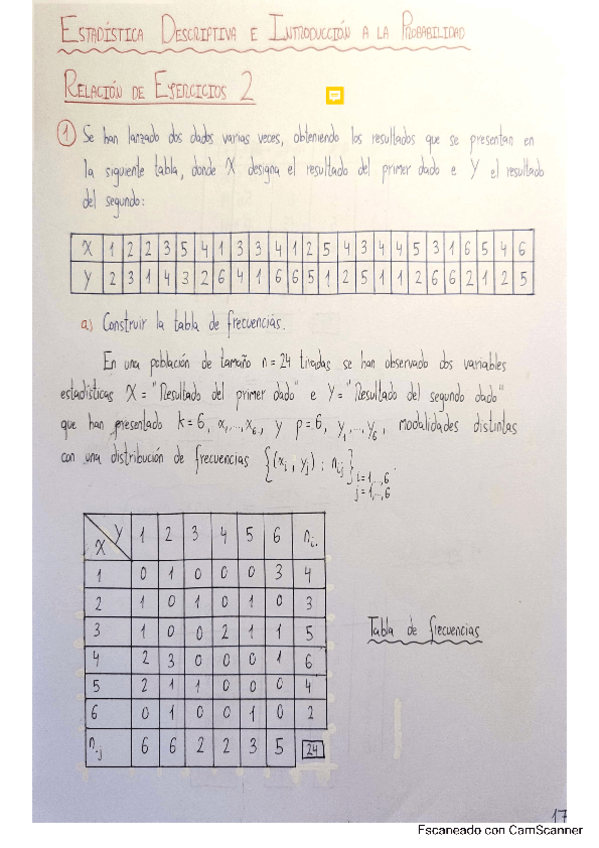 ESTADÍSTICA DESCRIPTIVA E INTRODUCCIÓN A LA PROBABILIDAD
RELACIÓN DE EJERCICIOS 2
1 Se han lanzado dos dados varias veces, obteniendo los resultados que se presentan en
la siguiente tabla, donde X designa el resultado del primer dado e Y el resultado
del segundo:
X 1 2 2 3 5 4 1 3 3 4 1 2 5 4 3 4 4 5 3 1 6 5 4 6
Y 2 3 1 4 3 2 6 4 1 6 6 5 1 2 5 1 1 2 6 6 2 1 2 5
a) Construir la tabla de frecuencias.
En una población de tamaño n=24 tiradas se han observado dos variables
estadísticas X = "Resultado del primer dado" e Y = "Resultado del segundo dado"
que han presentado k=6, x₁,...,x₆, y p=6, y₁,...,y₆, modalidades distintas
con una distribución de frecuencias {(xᵢ, yⱼ); nᵢⱼ} i=1,..,6
j=1,..,6
X Y 1 2 3 4 5 6 nᵢ.
1 0 1 0 0 0 3 4
2 1 0 1 0 1 0 3
3 1 0 0 2 1 1 5
Tabla de frecuencias
4 2 3 0 0 0 1 6
5 2 1 1 0 0 0 4
6 0 1 0 0 1 0 2
n.ⱼ 6 6 2 2 3 5 24
17
Escaneado con CamScanner